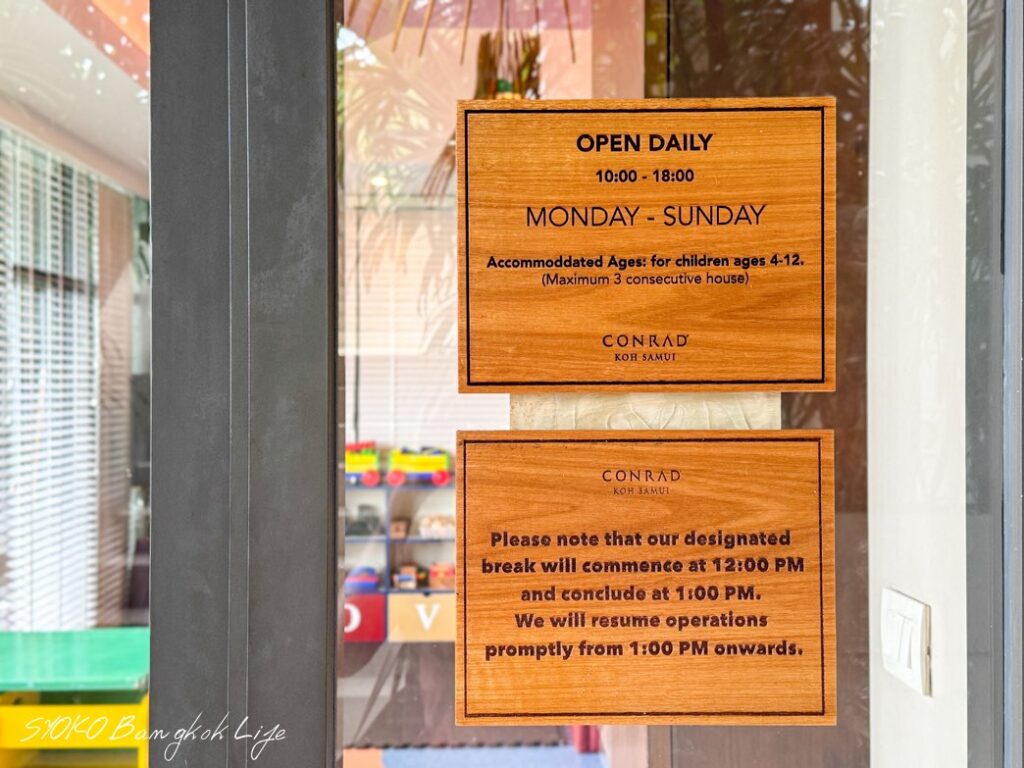 OPEN DAILY
10:00 - 18:00
MONDAY - SUNDAY
Accommoddated Ages: for children ages 4-12.
(Maximum 3 consecutive house)
CONRAD
KOH SAMUI
CONRAD
KOH SAMUI
Please note that our designated
break will commence at 12:00 PM
and conclude at 1:00 PM.
We will resume operations
promptly from 1:00 PM onwards.
V
SYOKO Bangkok Life